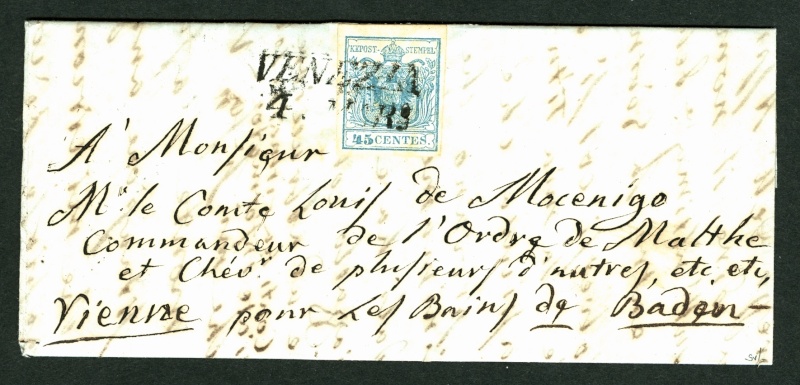 KKPOST-STEMPEL
VENEZIA
45 CENTES.
A' Monsieur
Mr. le Comte Louis de Mocenigo
Commandeur de l'Ordre de Malthe
et Chévr. de plusieurs d'autres, etc etc,
Vienne pour Les Bains de Baden-